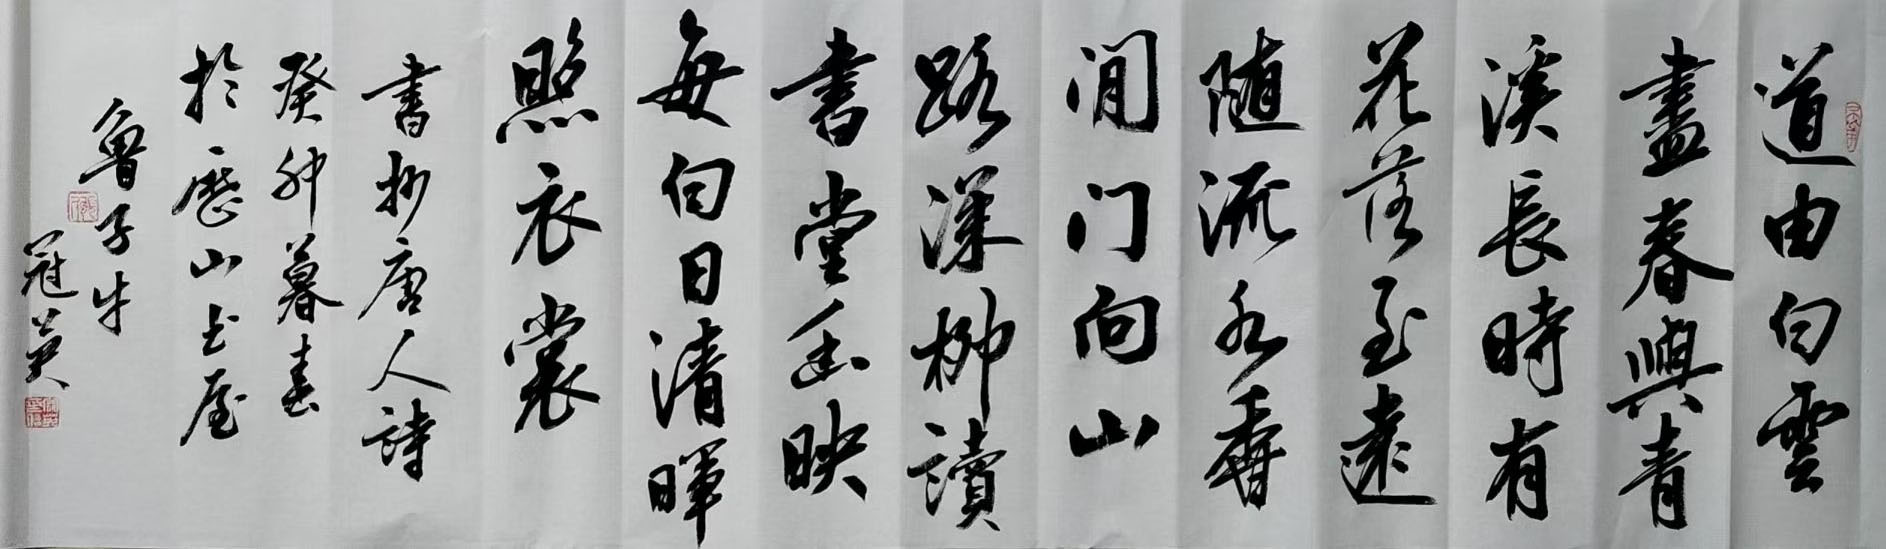 道由白雲
盡春與青
溪長時有
花落至遠
隨流水香
閒门向山
路深柳讀
書堂幽映
每白日清暉
照衣裳
書抄唐人詩
癸卯暮春
於歷山书屋
魯子牛
冠英